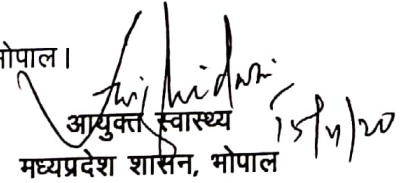 भोपाल।
आयुक्त स्वास्थ्य
मध्यप्रदेश शासन, भोपाल